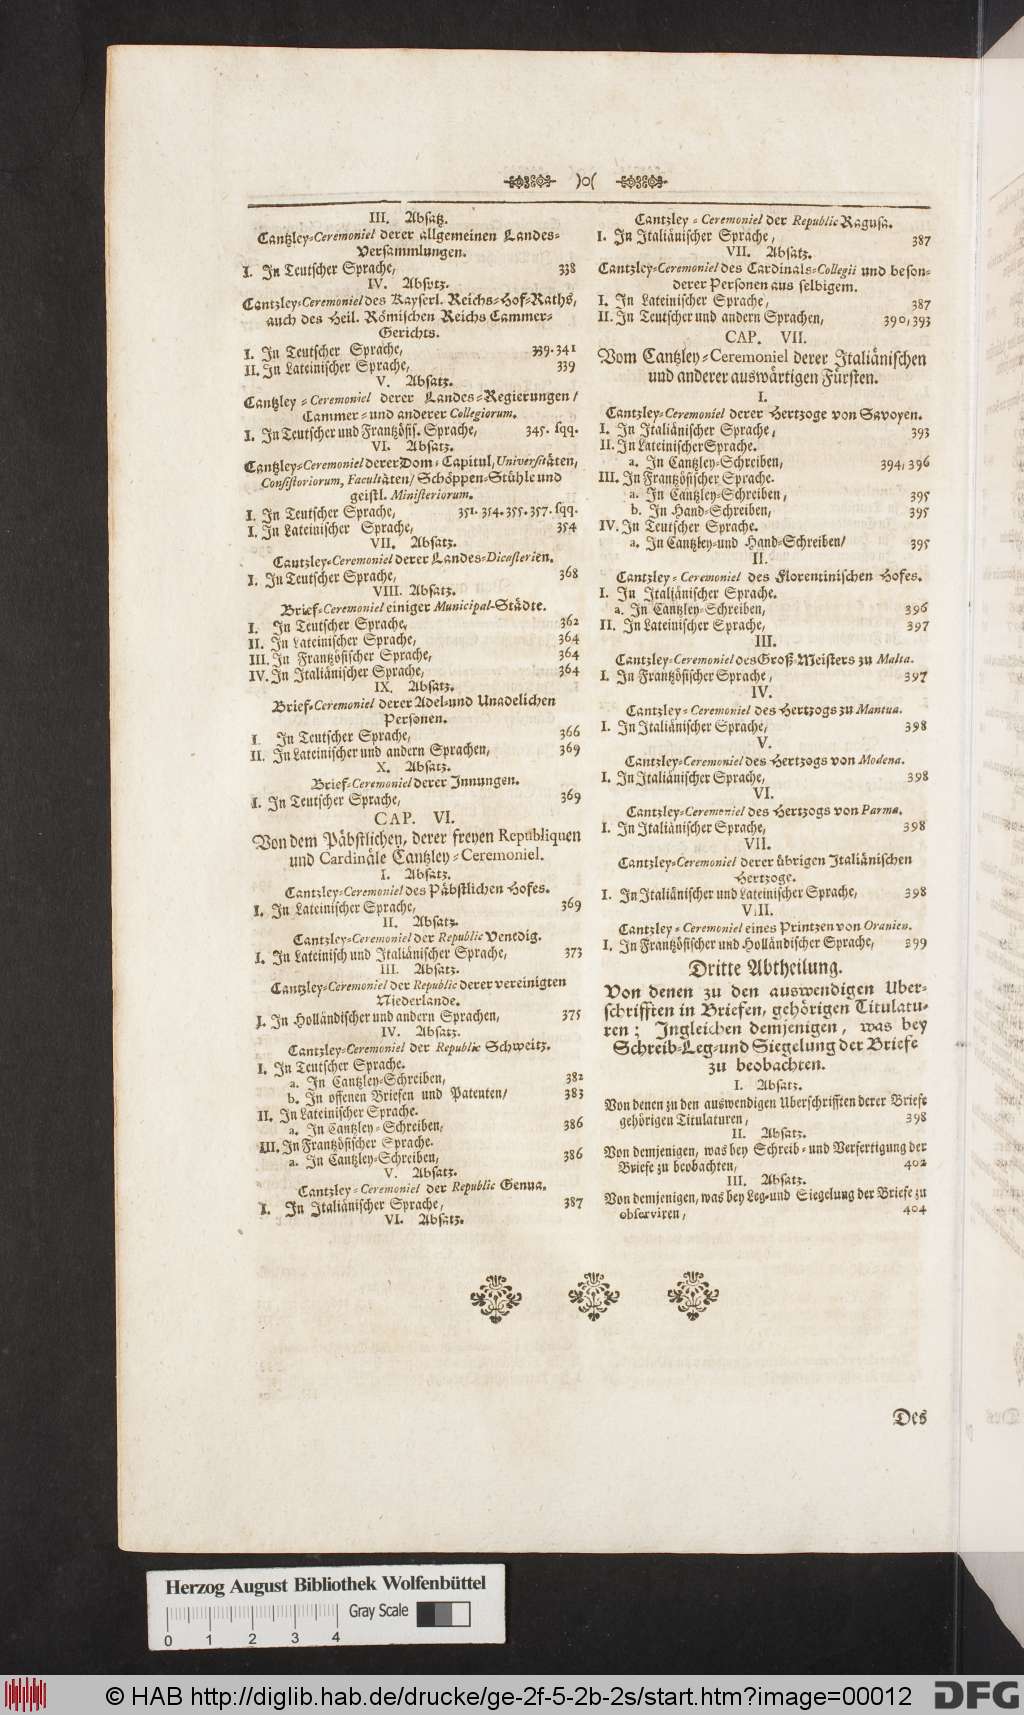 )o(
III. Absatz.
Cantzley-Ceremoniel derer allgemeinen Landes-
Versammlungen.
I. In Teutscher Sprache, 338
IV. Absatz.
Cantzley-Ceremoniel des Kayserl. Reichs-Hof-Raths,
auch des Heil. Römischen Reichs Cammer-
Gerichts.
I. In Teutscher Sprache, 339. 341
II. In Lateinischer Sprache, 339
V. Absatz.
Cantzley-Ceremoniel derer Landes-Regierungen/
Cammer- und anderer Collegiorum.
I. In Teutscher und Frantzösis. Sprache, 345. sqq.
VI. Absatz.
Cantzley-Ceremoniel derer Dom-Capitul, Universitäten,
Consistoriorum, Facultäten/ Schöppen-Stühle und
geistl. Ministeriorum.
I. In Teutscher Sprache, 351. 354. 355. 357. sqq.
I. In Lateinischer Sprache, 354
VII. Absatz.
Cantzley-Ceremoniel derer Landes-Dicasterien.
I. In Teutscher Sprache, 368
VIII. Absatz.
Brief-Ceremoniel einiger Municipal-Städte.
I. In Teutscher Sprache, 362
II. In Lateinischer Sprache, 364
III. In Frantzösischer Sprache, 364
IV. In Italiänischer Sprache, 364
IX. Absatz.
Brief-Ceremoniel derer Adel-und Unadelichen
Personen.
I. In Teutscher Sprache, 366
II. In Lateinischer und andern Sprachen, 369
X. Absatz.
Brief-Ceremoniel derer Innungen.
I. In Teutscher Sprache, 369
CAP. VI.
Von dem Päbstlichen, derer freyen Republiquen
und Cardinäle Cantzley-Ceremoniel.
I. Absatz.
Cantzley-Ceremoniel des Päbstlichen Hofes.
I. In Lateinischer Sprache, 369
II. Absatz.
Cantzley-Ceremoniel der Republic Venedig.
I. In Lateinisch und Italiänischer Sprache, 373
III. Absatz.
Cantzley-Ceremoniel der Republic derer vereinigten
Niederlande.
I. In Holländischer und andern Sprachen, 375
IV. Absatz.
Cantzley-Ceremoniel der Republic Schweitz.
I. In Teutscher Sprache.
a. In Cantzley-Schreiben, 382
b. In offenen Briefen und Patenten/ 383
II. In Lateinischer Sprache.
a. In Cantzley-Schreiben, 386
III. In Frantzösischer Sprache.
a. In Cantzley-Schreiben, 386
V. Absatz.
Cantzley-Ceremoniel der Republic Genua.
I. In Italiänischer Sprache, 387
VI. Absatz.
Cantzley-Ceremoniel der Republic Ragusa.
I. In Italiänischer Sprache, 387
VII. Absatz.
Cantzley-Ceremoniel des Cardinals-Collegii und beson-
derer Personen aus selbigem.
I. In Lateinischer Sprache, 387
II. In Teutscher und andern Sprachen, 390, 393
CAP. VII.
Vom Cantzley-Ceremoniel derer Italiänischen
und anderer auswärtigen Fürsten.
I.
Cantzley-Ceremoniel derer Hertzoge von Savoyen.
I. In Italiänischer Sprache, 393
II. In Lateinischer Sprache.
a. In Cantzley-Schreiben, 394, 396
III. In Frantzösischer Sprache.
a. In Cantzley-Schreiben, 395
b. In Hand-Schreiben, 395
IV. In Teutscher Sprache.
a. In Cantzley-und Hand-Schreiben/ 395
II.
Cantzley-Ceremoniel des Florentinischen Hofes.
I. In Italiänischer Sprache.
a. In Cantzley-Schreiben, 396
II. In Lateinischer Sprache, 397
III.
Cantzley-Ceremoniel des Groß-Meisters zu Malta.
I. In Frantzösischer Sprache, 397
IV.
Cantzley-Ceremoniel des Hertzogs zu Mantua.
I. In Italiänischer Sprache, 398
V.
Cantzley-Ceremoniel des Hertzogs von Modena.
I. In Italiänischer Sprache, 398
VI.
Cantzley-Ceremoniel des Hertzogs von Parma.
I. In Italiänischer Sprache, 398
VII.
Cantzley-Ceremoniel derer übrigen Italiänischen
Hertzoge.
I. In Italiänischer und Lateinischer Sprache, 398
VIII.
Cantzley-Ceremoniel eines Printzen von Oranien.
I. In Frantzösischer und Holländischer Sprache, 399
Dritte Abtheilung.
Von denen zu den auswendigen Uber-
schrifften in Briefen, gehörigen Titulatu-
ren; Ingleichen demjenigen, was bey
Schreib-Leg-und Siegelung der Briefe
zu beobachten.
I. Absatz.
Von denen zu den auswendigen Uberschrifften derer Briefe
gehörigen Titulaturen, 398
II. Absatz.
Von demjenigen, was bey Schreib- und Verfertigung der
Briefe zu beobachten, 402
III. Absatz.
Von demjenigen, was bey Leg-und Siegelung der Briefe zu
observiren, 404
Des
Herzog August Bibliothek Wolfenbüttel
Gray Scale
0 1 2 3 4
© HAB http://diglib.hab.de/drucke/ge-2f-5-2b-2s/start.htm?image=00012
DFG